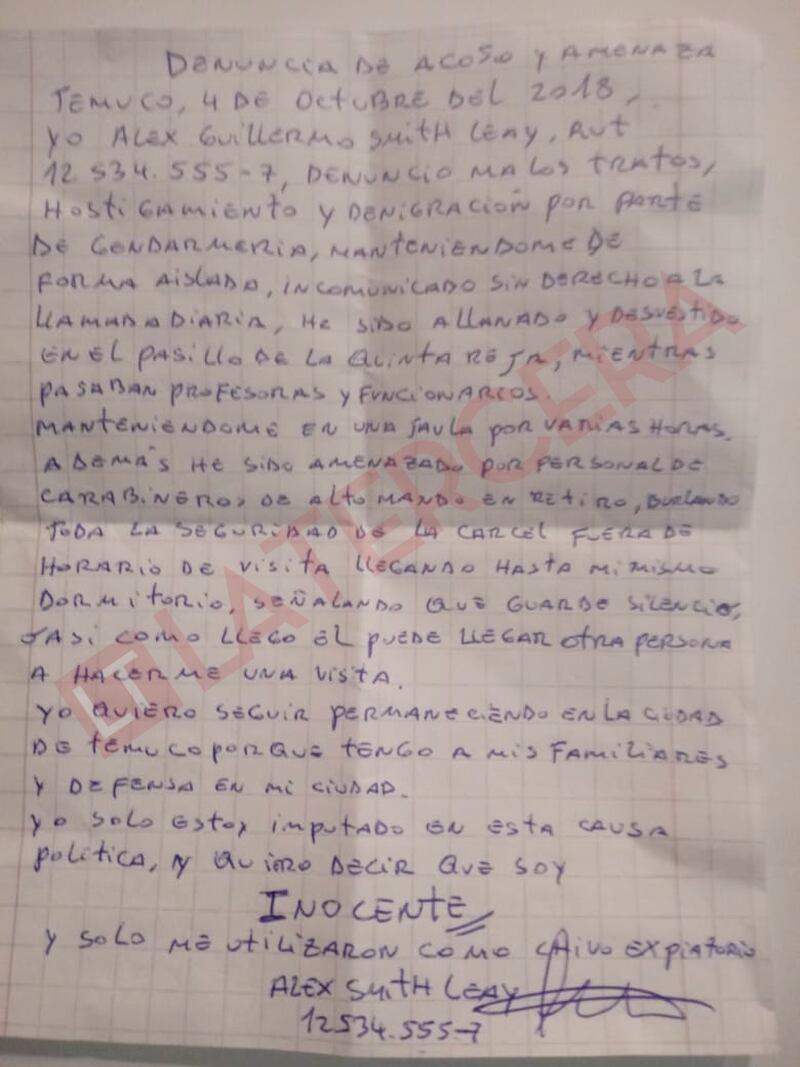 DENUNCIA DE ACOSO Y AMENAZA
TEMUCO, 4 DE OCTUBRE DEL 2018,
YO ALEX GUILLERMO SMITH LEAY, RUT
12534.555-7, DENUNCIO MALOS TRATOS,
HOSTIGAMIENTO Y DENIGRACIÓN POR PARTE
DE GENDARMERIA, MANTENIENDOME DE
FORMA AISLADA, INCOMUNICADO SIN DERECHO A LA
LLAMADA DIARIA, HE SIDO ALLANADO Y DESVESTIDO
EN EL PASILLO DE LA QUINTA REJA, MIENTRAS
PASABAN PROFESORAS Y FUNCIONARIOS.
MANTENIÉNDOME EN UNA JAULA POR VARIAS HORAS.
ADEMÁS HE SIDO AMENAZADO POR PERSONAL DE
CARABINEROS DE ALTO MANDO EN RETIRO, BURLANDO
TODA LA SEGURIDAD DE LA CARCEL FUERA DE
HORARIO DE VISITA LLEGANDO HASTA MI MISMO
DORMITORIO, SEÑALANDO QUE GUARDE SILENCIO,
ASI COMO LLEGO EL PUEDE LLEGAR OTRA PERSONA
A HACERME UNA VISITA.
YO QUIERO SEGUIR PERMANECIENDO EN LA CIUDAD
DE TEMUCO PORQUE TENGO A MIS FAMILIARES
Y DEFENSA EN MI CIUDAD.
YO SOLO ESTOY IMPUTADO EN ESTA CAUSA
POLITICA, Y QUIERO DECIR QUE SOY
INOCENTE
Y SOLO ME UTILIZARON COMO CHIVO EXPIATORIO
ALEX SMITH LEAY
12534.555-7
LT LATERCERA